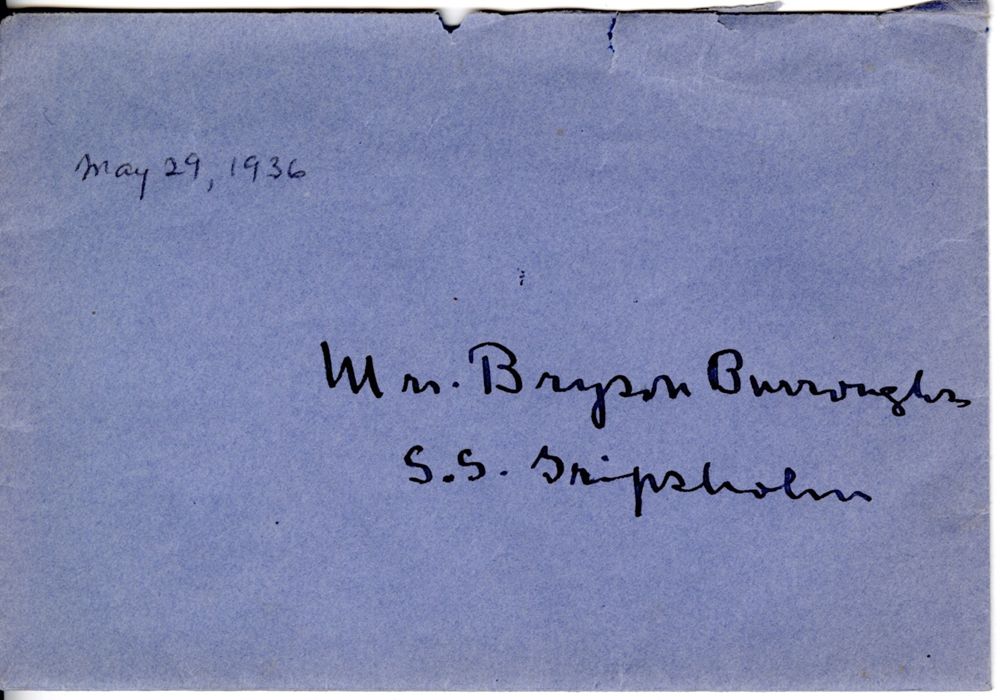 May 29, 1936
Mrs. Bryson Burroughs
S.S. Gripsholm